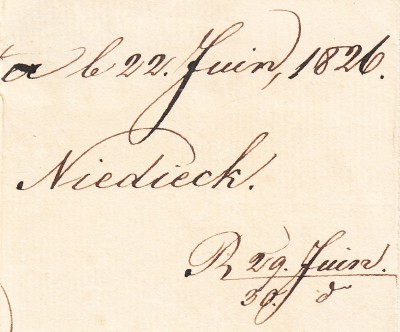 a le 22. Juin, 1826.
Niedieck.
R 29. Juin.
30. do